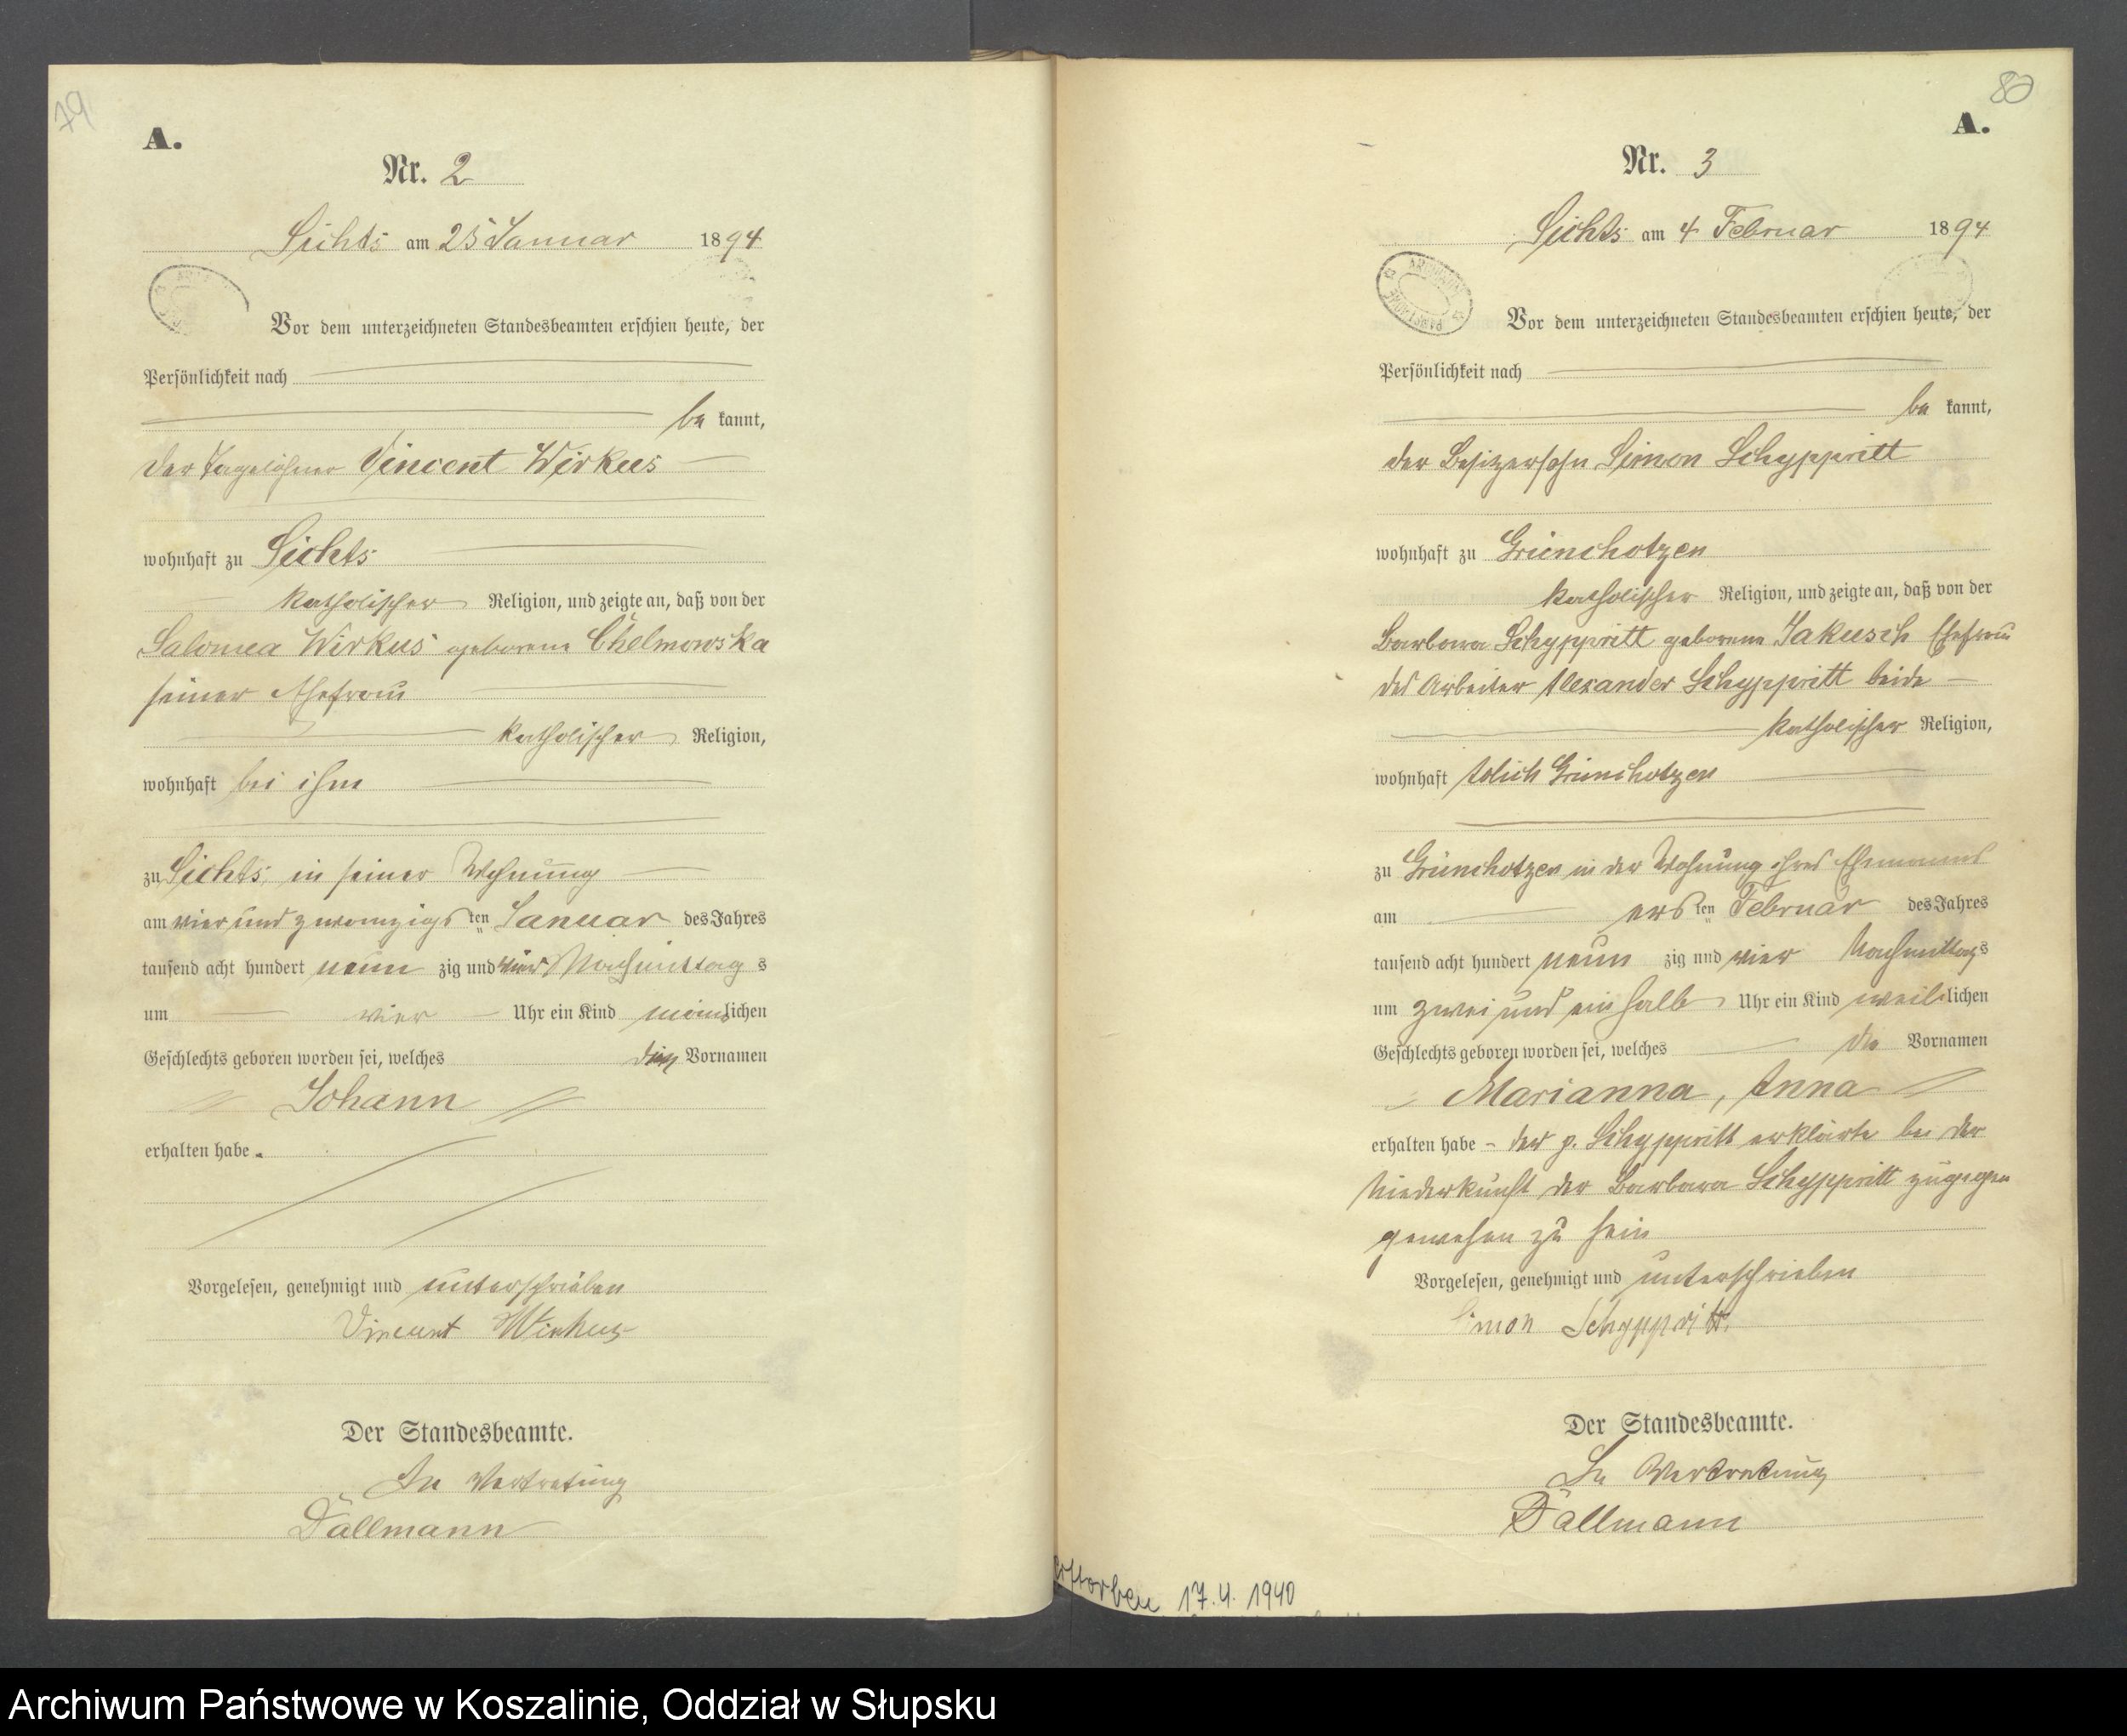 79
A.
Nr. 2
Sichts am 25 Januar 1894
Vor dem unterzeichneten Standesbeamten erschien heute, der
Persönlichkeit nach
be kannt,
der Tagelöhner Vincent Wirkus
wohnhaft zu Sichts
katholischer Religion, und zeigte an, daß von der
Salomea Wirkus geborene Chelmowska
seiner Ehefrau
katholischer Religion,
wohnhaft bei ihm
zu Sichts, in seiner Wohnung
am vier und zwanzigs ten Januar des Jahres
tausend acht hundert neun zig und vier Nachmittag s
um vier Uhr ein Kind männlichen
Geschlechts geboren worden sei, welches den Vornamen
Johann
erhalten habe.
Vorgelesen, genehmigt und unterschrieben
Vincent Wirkus
Der Standesbeamte.
In Vertretung
Dallmann
80
A.
Nr. 3
Sichts am 4 Februar 1894
ARCHIWUM
Vor dem unterzeichneten Standesbeamten erschien heute, der
Persönlichkeit nach
be kannt,
der Besitzersohn Simon Schyppritt
wohnhaft zu Grünchotzen
katholischer Religion, und zeigte an, daß von der
Barbara Schyppritt geborene Jakusch Ehefrau
des Arbeiter Alexander Schyppritt beide
katholischer Religion,
wohnhaft Adlich Grünchotzen
zu Grünchotzen in der Wohnung ihres Ehemannes
am ers ten Februar des Jahres
tausend acht hundert neun zig und vier Nachmittags
um zwei und ein halb Uhr ein Kind weiblichen
Geschlechts geboren worden sei, welches die Vornamen
Marianna, Anna
erhalten habe - der p. Schyppritt erklärte bei der
Niederkunft der Barbara Schyppritt zugegen
gewesen zu sein
Vorgelesen, genehmigt und unterschrieben
Simon Schyppritt.
Der Standesbeamte.
In Vertretung
Dallmann
erstorben 17.4.1940
Archiwum Państwowe w Koszalinie, Oddział w Słupsku